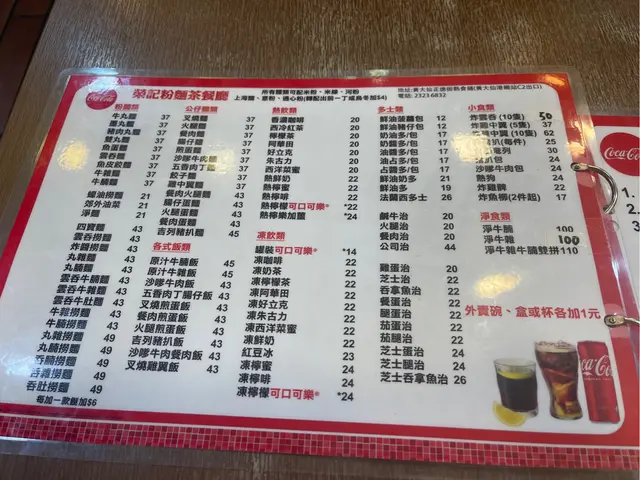 榮記粉麵茶餐廳
所有麵類可配米粉、米線、河粉
上海麵、意粉、通心粉(轉配出前一丁或烏冬加$4)
地址:黃大仙正德街熟食檔(黃大仙港鐵站C2出口)
電話: 2323-6832
粉麵類
牛丸麵 37
墨丸麵 37
豬肉丸麵 37
雙丸麵 37
魚蛋麵 37
雲吞麵 37
魚皮餃麵 37
牛雜麵 37
牛腩麵 37
蠔油撈麵 21
郊外油菜 21
淨麵 21
四寶麵 43
炸醬撈麵 43
丸雜麵 43
丸腩麵 43
雲吞牛腩麵 43
雲吞牛雜麵 43
雲吞牛肚麵 43
牛雜撈麵 43
牛腩撈麵 43
丸雜撈麵 49
丸腩撈麵 49
吞腩撈麵 49
吞雜撈麵 49
吞肚撈麵 49
每加一款餸加$6
公仔麵類
叉燒麵 37
火腿麵 37
餐肉麵 37
腸仔麵 37
煎蛋麵 37
沙嗲牛肉麵 37
五香肉丁麵 37
餃子麵 37
雞中翼麵 37
餐肉火腿麵 43
腸仔蛋麵 43
火腿蛋麵 43
餐肉蛋麵 43
吉列豬扒麵 43
各式飯類
原汁牛腩飯 45
原汁牛雜飯 45
沙嗲牛肉飯 43
五香肉丁腸仔飯 43
叉燒煎蛋飯 43
餐肉煎蛋飯 43
火腿煎蛋飯 43
吉列豬扒飯 43
沙嗲牛肉餐肉飯 43
叉燒雞翼飯 43
熱飲類
香濃咖啡 20
西冷紅茶 20
檸檬茶 20
阿華田 20
好立克 20
朱古力 20
西洋菜蜜 20
熱鮮奶 22
熱檸蜜 22
熱檸啡 22
熱檸檬可口可樂® *22
熱檸樂加薑 *24
凍飲類
罐裝可口可樂® *14
凍咖啡 22
凍奶茶 22
凍檸檬茶 22
凍華田 22
凍好立克 22
凍朱古力 22
凍西洋菜蜜 22
凍鮮奶 22
紅豆冰 23
凍檸蜜 24
凍檸啡 24
凍檸檬可口可樂® *24
多士類
鮮油菠蘿包 12
鮮油豬仔包 12
奶油多/包 17
奶醬多/包 17
油醬多/包 17
油占多/包 17
占醬多/包 17
鮮油奶多 21
鮮油多 19
法蘭西多士 26
鹹牛治 20
火腿治 20
餐肉治 20
公司治 44
雞蛋治 20
芝士治 22
吞拿魚治 22
餐蛋治 22
腿蛋治 22
茄蛋治 22
茄腿治 22
芝士蛋治 24
芝士腿治 24
芝士吞拿魚治 26
小食類
炸雲吞 (10隻) 50
炸雞中翼 (5隻) 37
炸雞中翼 (10隻) 62
豬扒(每件) 25
30
扒包 24
沙包 24
熱狗 24
炸雞髀 22
炸魚柳(2件起) 17
淨食類
淨牛腩 100
淨牛雜 100
淨牛雜牛腩雙拼110
外賣碗、盒或杯各加1元
Coca-Cola
Coca-Cola
Coca-Cola
1.
2.
3